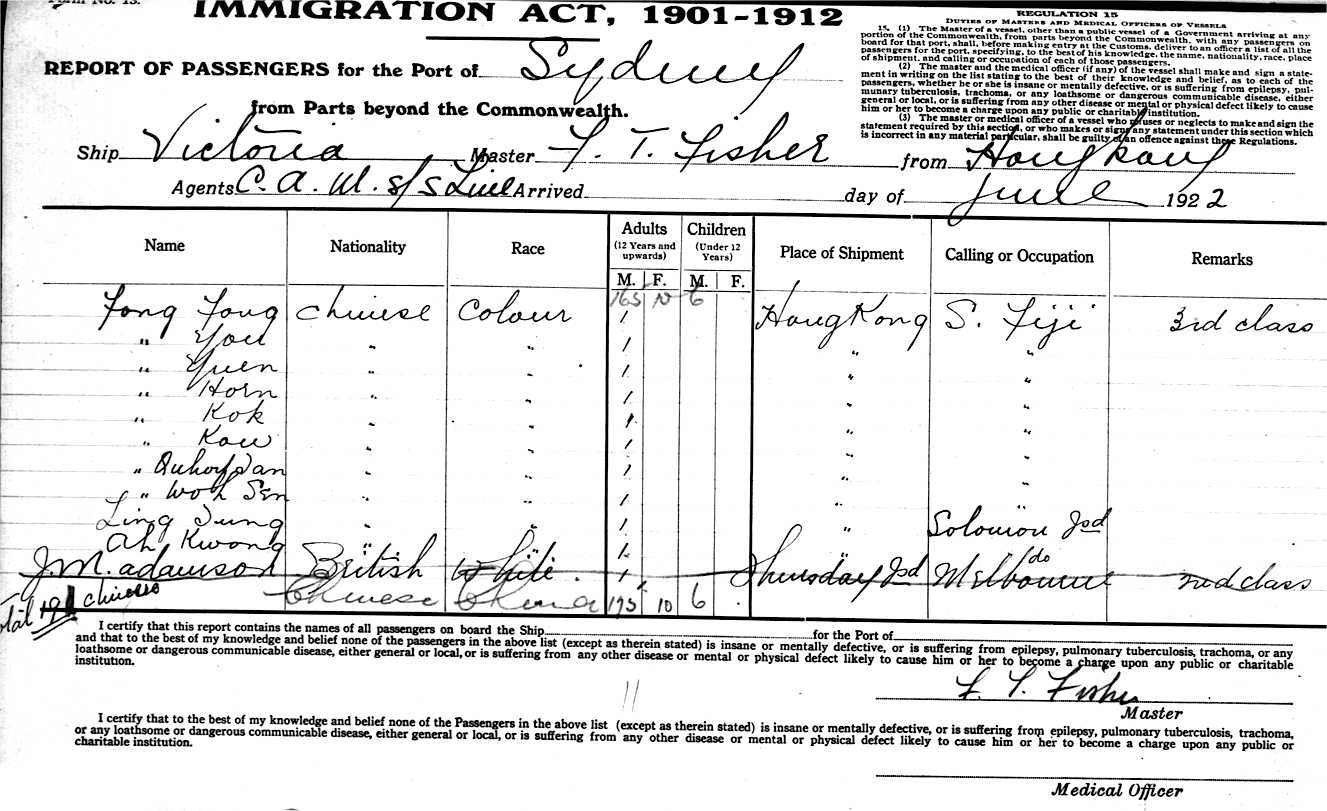 Form No. 13.
IMMIGRATION ACT, 1901-1912
REPORT OF PASSENGERS for the Port of Sydney
from Parts beyond the Commonwealth.
REGULATION 15
DUTIES OF MASTERS AND MEDICAL OFFICERS OF VESSELS
15. (1) The Master of a vessel, other than a public vessel of a Government arriving at any
portion of the Commonwealth, from parts beyond the Commonwealth, with any passengers on
board for that port, shall, before making entry at the Customs, deliver to an officer a list of all the
passengers for the port, specifying, to the best of his knowledge, the name, nationality, race, place
of shipment, and calling or occupation of each of those passengers.
(2) The master and the medical officer (if any) of the vessel shall make and sign a state-
ment in writing on the list stating to the best of their knowledge and belief, as to each of the
passengers, whether he or she is insane or mentally defective, or is suffering from epilepsy, pul-
munary tuberculosis, trachoma, or any loathsome or dangerous communicable disease, either
general or local, or is suffering from any other disease or mental or physical defect likely to cause
him or her to become a charge upon any public or charitable institution.
(3) The master or medical officer of a vessel who refuses or neglects to make and sign the
statement required by this section, or who makes or signs any statement under this section which
is incorrect in any material particular, shall be guilty of an offence against these Regulations.
Ship Victoria Master F. T. Fisher from Hongkong
Agents C. A. M. S/S Line Arrived day of June 1922
Name Nationality Race Adults (12 Years and upwards) M. F. Children (Under 12 Years) M. F. Place of Shipment Calling or Occupation Remarks
165 6
Fong Fong Chinese Colour 1 Hong Kong S. Fiji 3rd class
" You " " 1 " "
" Yuen " " 1 " "
" Horn " " 1 " "
" Kok " " 1 " "
" Kow " " 1 " "
" " " 1 " "
" Woh Sen " " 1 "
Ling Sung " " 1 " Solomon Isd
Ah Kwong " " 1 " do
J. M. Adamson British White 1 Thursday Isd Melbourne 2nd class
Total 191 Chinese Chinese China 175 10 6
I certify that this report contains the names of all passengers on board the Ship for the Port of
and that to the best of my knowledge and belief none of the passengers in the above list (except as therein stated) is insane or mentally defective, or is suffering from epilepsy, pulmonary tuberculosis, trachoma, or any
loathsome or dangerous communicable disease, either general or local, or is suffering from any other disease or mental or physical defect likely to cause him or her to become a charge upon any public or charitable
institution.
11
F. T. Fisher
Master
I certify that to the best of my knowledge and belief none of the Passengers in the above list (except as therein stated) is insane or mentally defective, or is suffering from epilepsy, pulmonary tuberculosis, trachoma,
or any loathsome or dangerous communicable disease, either general or local, or is suffering from any other disease or mental or physical defect likely to cause him or her to become a charge upon any public or
charitable institution.
Medical Officer